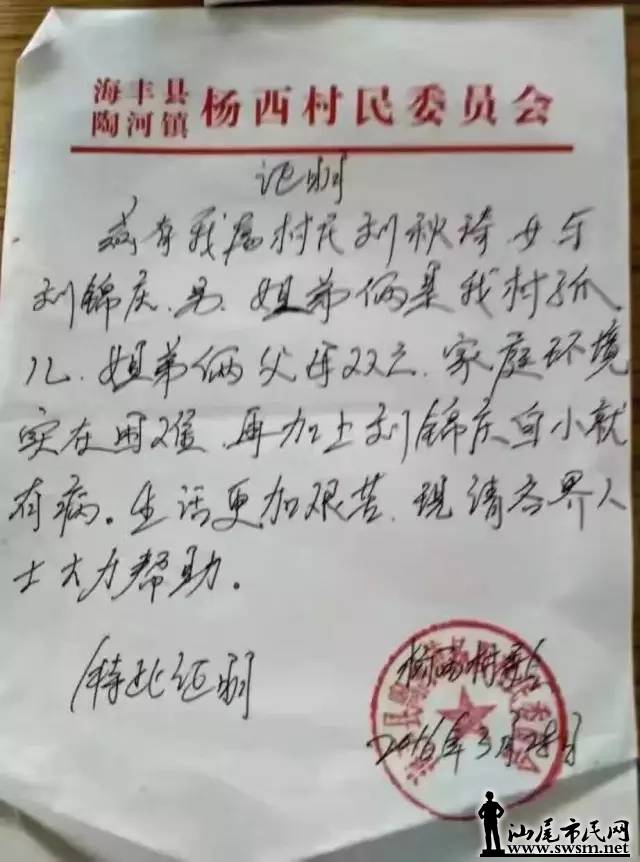 海丰县
陶河镇
杨西村民委员会
证明
兹有我属村民刘秋琦女与
刘锦庆.男.姐弟俩是我村孤
儿.姐弟俩父母双亡.家庭环境
实在困难.再加上刘锦庆自小就
有病。生活更加艰苦.现请各界人
士大力帮助。
特此证明
杨西村委会
2016年3月28日
汕尾市民网
www.swsm.net